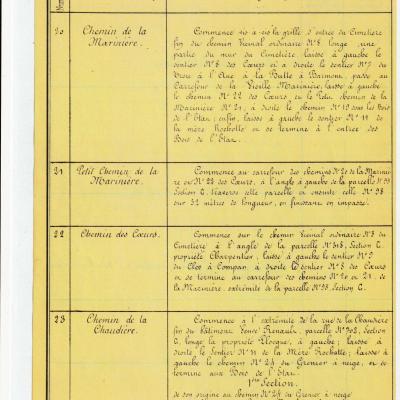 20
Chemin de la
Marinière.
Commence vis-à-vis la grille d'entrée du Cimetière
fin du chemin Vicinal ordinaire Nº 8 longe une
partie du mur du Cimetière, laisse à gauche le
sentier Nº 8 des Cœurs et à droite le sentier Nº 7 du
à la Butte à passe au
Carrefour de la Vieille Marinière, laisse à gauche
le chemin Nº 22 des Cœurs, et le Petit chemin de la
Marinière Nº 21, à droite le chemin Nº 19 sous les Bois
de l'Etat; enfin, laisse à gauche le sentier Nº 11 de
la mère Rochette et se termine à l'entrée des
Bois de l'Etat.
21
Petit Chemin de la
Marinière.
Commence au carrefour des chemins Nº 20 de la Mariniè
re et Nº 22 des Cœurs, à l'angle à gauche de la parcelle Nº 99
Section C, traverse cette parcelle et ensuite celle Nº 98
sur 52 mètres de longueur, en finissant en impasse.
22
Chemin des Cœurs.
Commence sur le chemin Vicinal ordinaire Nº 8 du
Cimetière à l'angle de la parcelle Nº 518, Section C,
propriété Charpentier, laisse à gauche le sentier Nº 9
du Clos à Compan, à droite le sentier Nº 8 des Cœurs
et se termine au carrefour des chemins Nº 20 et 21, de
la Marinière, extrémité de la parcelle Nº 99, Section C.
23
Chemin de la
Chaudière.
Commence à l'extrémité de la rue de la Chaudière
fin du Bâtiment Veuve Renault, parcelle Nº 302, Section
C, longe la propriété à gauche; laisse à
droite, le Sentier Nº 11 de la Mère Rochette; laisse à
gauche le chemin Nº 24 du Grenier à neige, et se
termine aux Bois de l'Etat.
1ère Section.
de son origine au chemin Nº 24 du Grenier à neige